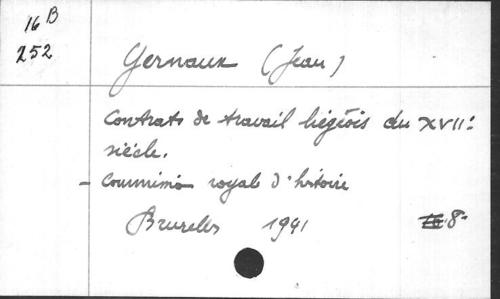 16 B
252
Yernaux (Jean)
Contrats de travail liégeois du XVII e
siècle.
- Commission royale d'histoire
Bruxelles 1941 8°